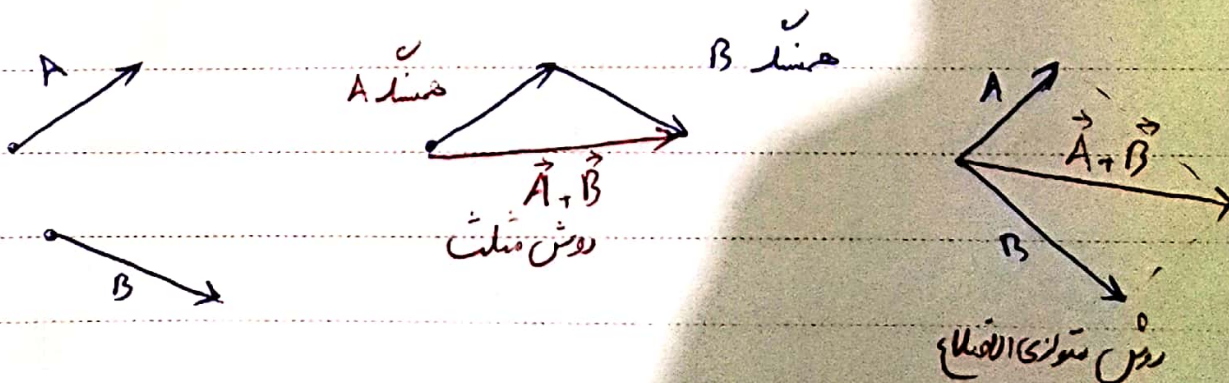 A
B
همسنگ A
همسنگ B
A⃗ + B⃗
روش مثلث
A
A⃗ + B⃗
B
روش متوازی الاضلاع